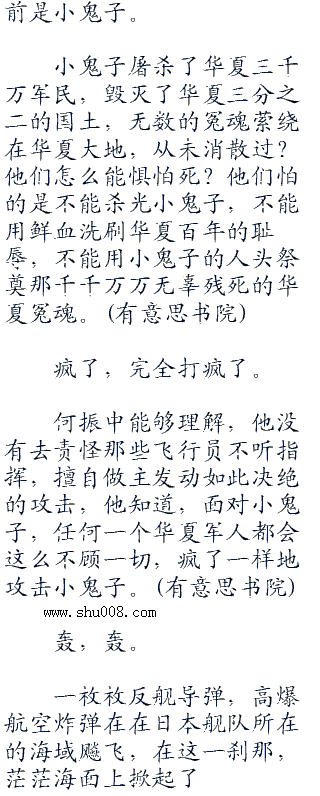 前是小鬼子。
小鬼子屠杀了华夏三千
万军民，毁灭了华夏三分之
二的国土，无数的冤魂萦绕
在华夏大地，从未消散过？
他们怎么能惧怕死？他们怕
的是不能杀光小鬼子，不能
用鲜血洗刷华夏百年的耻
辱，不能用小鬼子的人头祭
奠那千千万万无辜残死的华
夏冤魂。(有意思书院)
疯了，完全打疯了。
何振中能够理解，他没
有去责怪那些飞行员不听指
挥，擅自做主发动如此决绝
的攻击，他知道，面对小鬼
子，任何一个华夏军人都会
这么不顾一切，疯了一样地
攻击小鬼子。(有意思书院)
www.shu008.com
轰，轰。
一枚枚反舰导弹，高爆
航空炸弹在在日本舰队所在
的海域飚飞，在这一刹那，
茫茫海面上掀起了